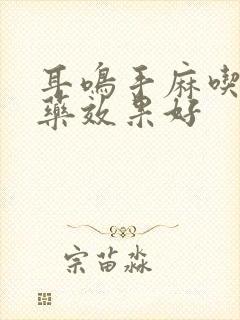 耳鳴手麻喫
藥效果好
宗苗淼